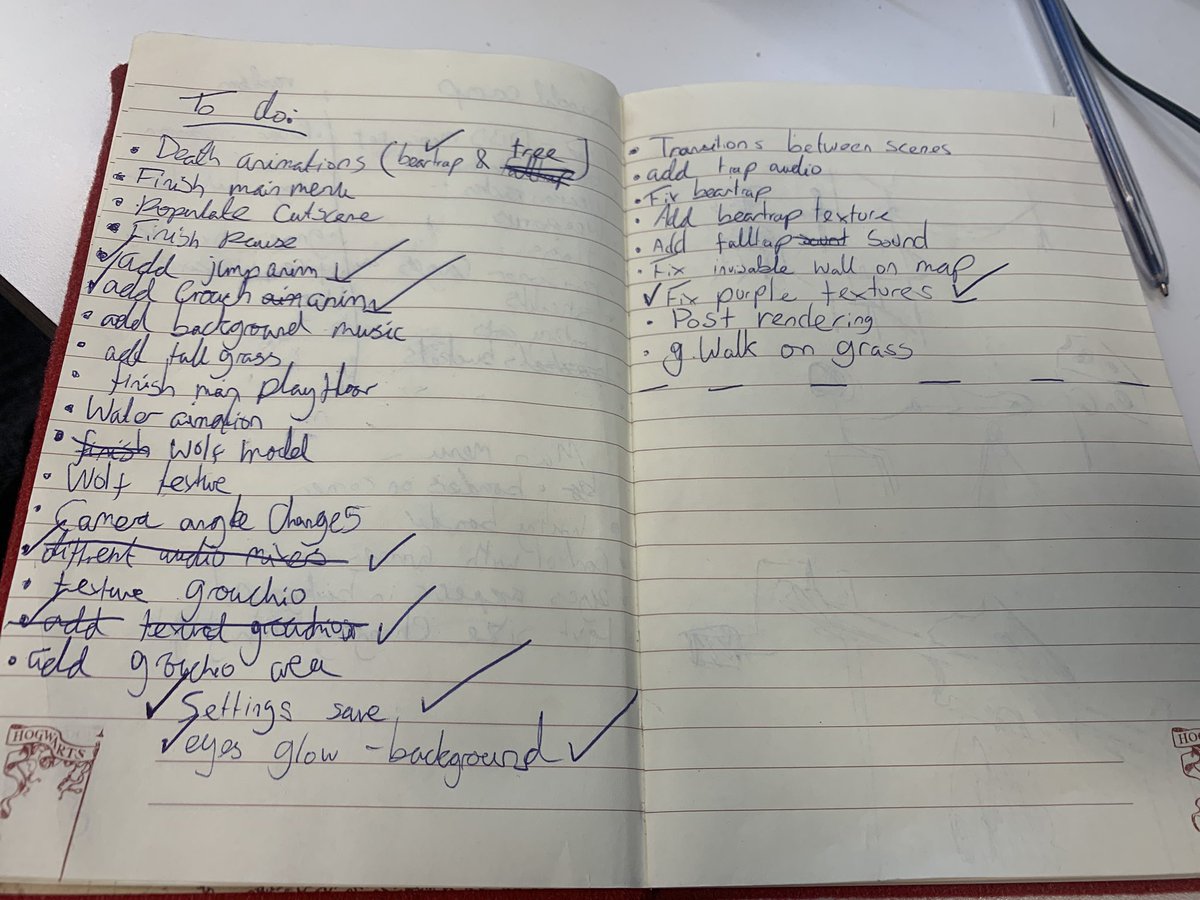 To do:
• Death animations (beartrap & tree falltrap)
• Finish main menu
• Populate Cutscene
• Finish Pause
add jump anim
add Crouch anim
• add background music
• add tall grass
• finish main play floor
• Water aimation
• finish Wolf model
• Wolf testure
• Camera angle Changes
different audio mixes
• texture grouchio
add
• add grouchio area
Settings save
eyes glow - background
HOGWARTS
• Transitions between scenes
• add trap audio
• Fix beartrap
• Add beartrap texture
• Add falltap sount Sound
• Fix invisable wall on map
Fix purple textures
• Post rendering
• g. Walk on grass
HOG